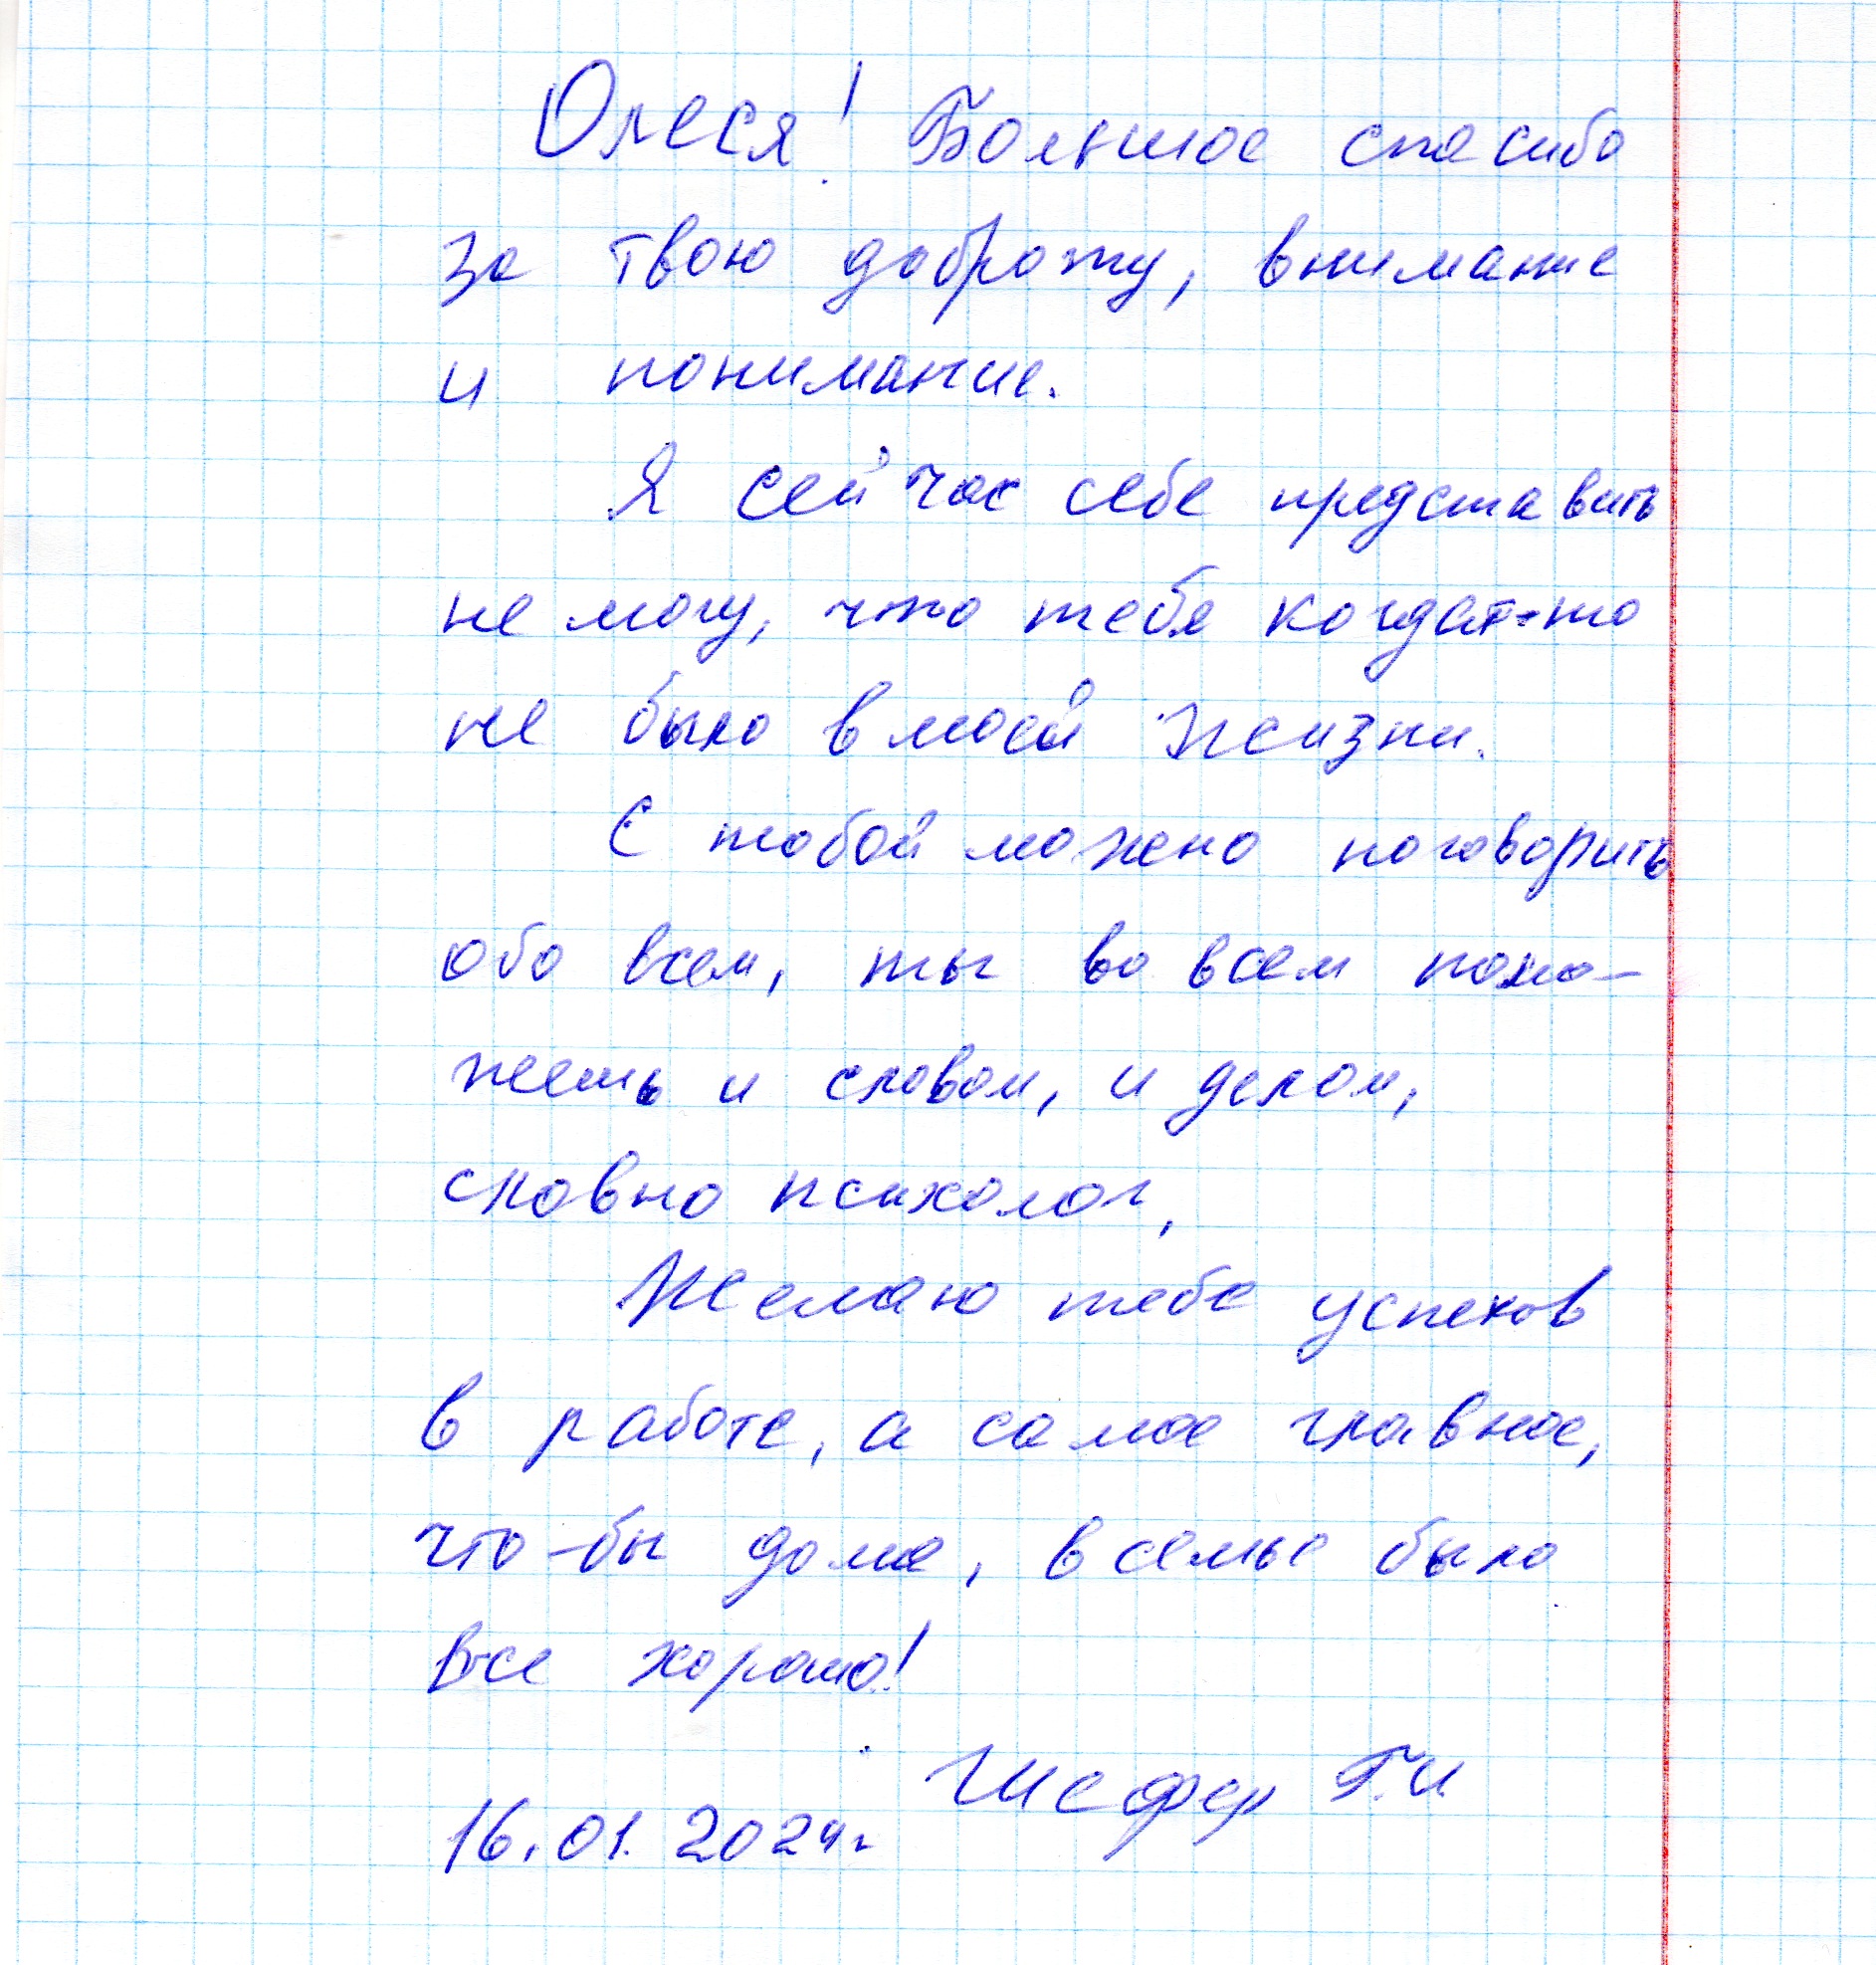 Олеся! Большое спасибо
за твою доброту, внимание
и понимание.
Я сейчас себе представить
не могу, что тебя когда-то
не было в моей жизни.
С тобой можно поговорить
обо всем, ты во всем помо-
жешь и словом, и делом,
словно психолог,
Желаю тебе успехов
в работе, а самое главное,
что-бы дома, в семье было
все хорошо!
Г.И.
16.01.2024г